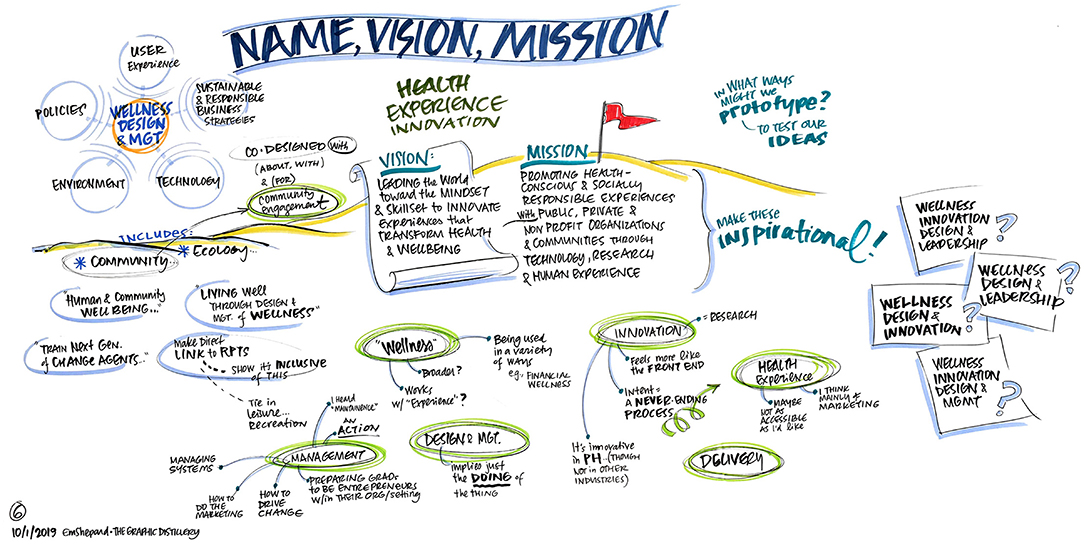 NAME, VISION, MISSION
USER
Experience
POLICIES
SUSTAINABLE
& RESPONSIBLE
BUSINESS
STRATEGIES
WELLNESS
DESIGN
& MGT
ENVIRONMENT
TECHNOLOGY
CO-DESIGNED With
(ABOUT, WITH)
& (FOR)
Community
engagement
INCLUDES:
* COMMUNITY...
* ECOLOGY...
"Human & Community
WELL BEING..."
"LIVING Well
THROUGH DESIGN &
MGT. of WELLNESS"
"TRAIN NEXT GEN.
of CHANGE AGENTS..."
Make Direct
LINK to RPTS
SHOW it's INCLUSIVE
OF THIS
Tie in
leisure...
Recreation
HEALTH
EXPERIENCE
INNOVATION
VISION:
LEADING the World
toward the MINDSET
& SKILLSET to INNOVATE
Experiences that
TRANSFORM HEALTH
& WELLBEING
MISSION:
PROMOTING HEALTH-
CONSCIOUS & SOCIALLY
RESPONSIBLE EXPERIENCES
With PUBLIC, PRIVATE &
NON PROFIT ORGANIZATIONS
& COMMUNITIES THROUGH
TECHNOLOGY, RESEARCH
& HUMAN EXPERIENCE
IN WHAT WAYS
MIGHT WE
PROTOTYPE?
TO TEST OUR
IDEAS
MAKE THESE
INSPIRATIONAL!
WELLNESS
INNOVATION
DESIGN &
LEADERSHIP
?
WELLNESS
DESIGN &
LEADERSHIP
?
WELLNESS
DESIGN &
INNOVATION
?
WELLNESS
INNOVATION
DESIGN &
MGMT
?
"Wellness"
Being used
in a variety
of ways
eg. FINANCIAL
WELLNESS
Broader?
Works
w/ "Experience"?
INNOVATION
= RESEARCH
Feels more like
the FRONT END
Intent =
a NEVER-ENDING
PROCESS
It's innovative
in PH... (THOUGH
NOT IN OTHER
INDUSTRIES)
HEALTH
Experience
MAYBE
NOT AS
ACCESSIBLE
AS I'd LIKE
I THINK
MAINLY of
MARKETING
DELIVERY
I HEARD
"MAINTAINENCE"
AN
ACTION
MANAGEMENT
MANAGING
SYSTEMS
HOW to
DO THE
MARKETING
HOW to
DRIVE
CHANGE
PREPARING GRADS
TO BE ENTREPRENEURS
W/in THEIR ORG/setting
DESIGN & MGT.
implies just
the DOING of
the thing
6
10/1/2019 EmShepard • THE GRAPHIC DISTILLERY